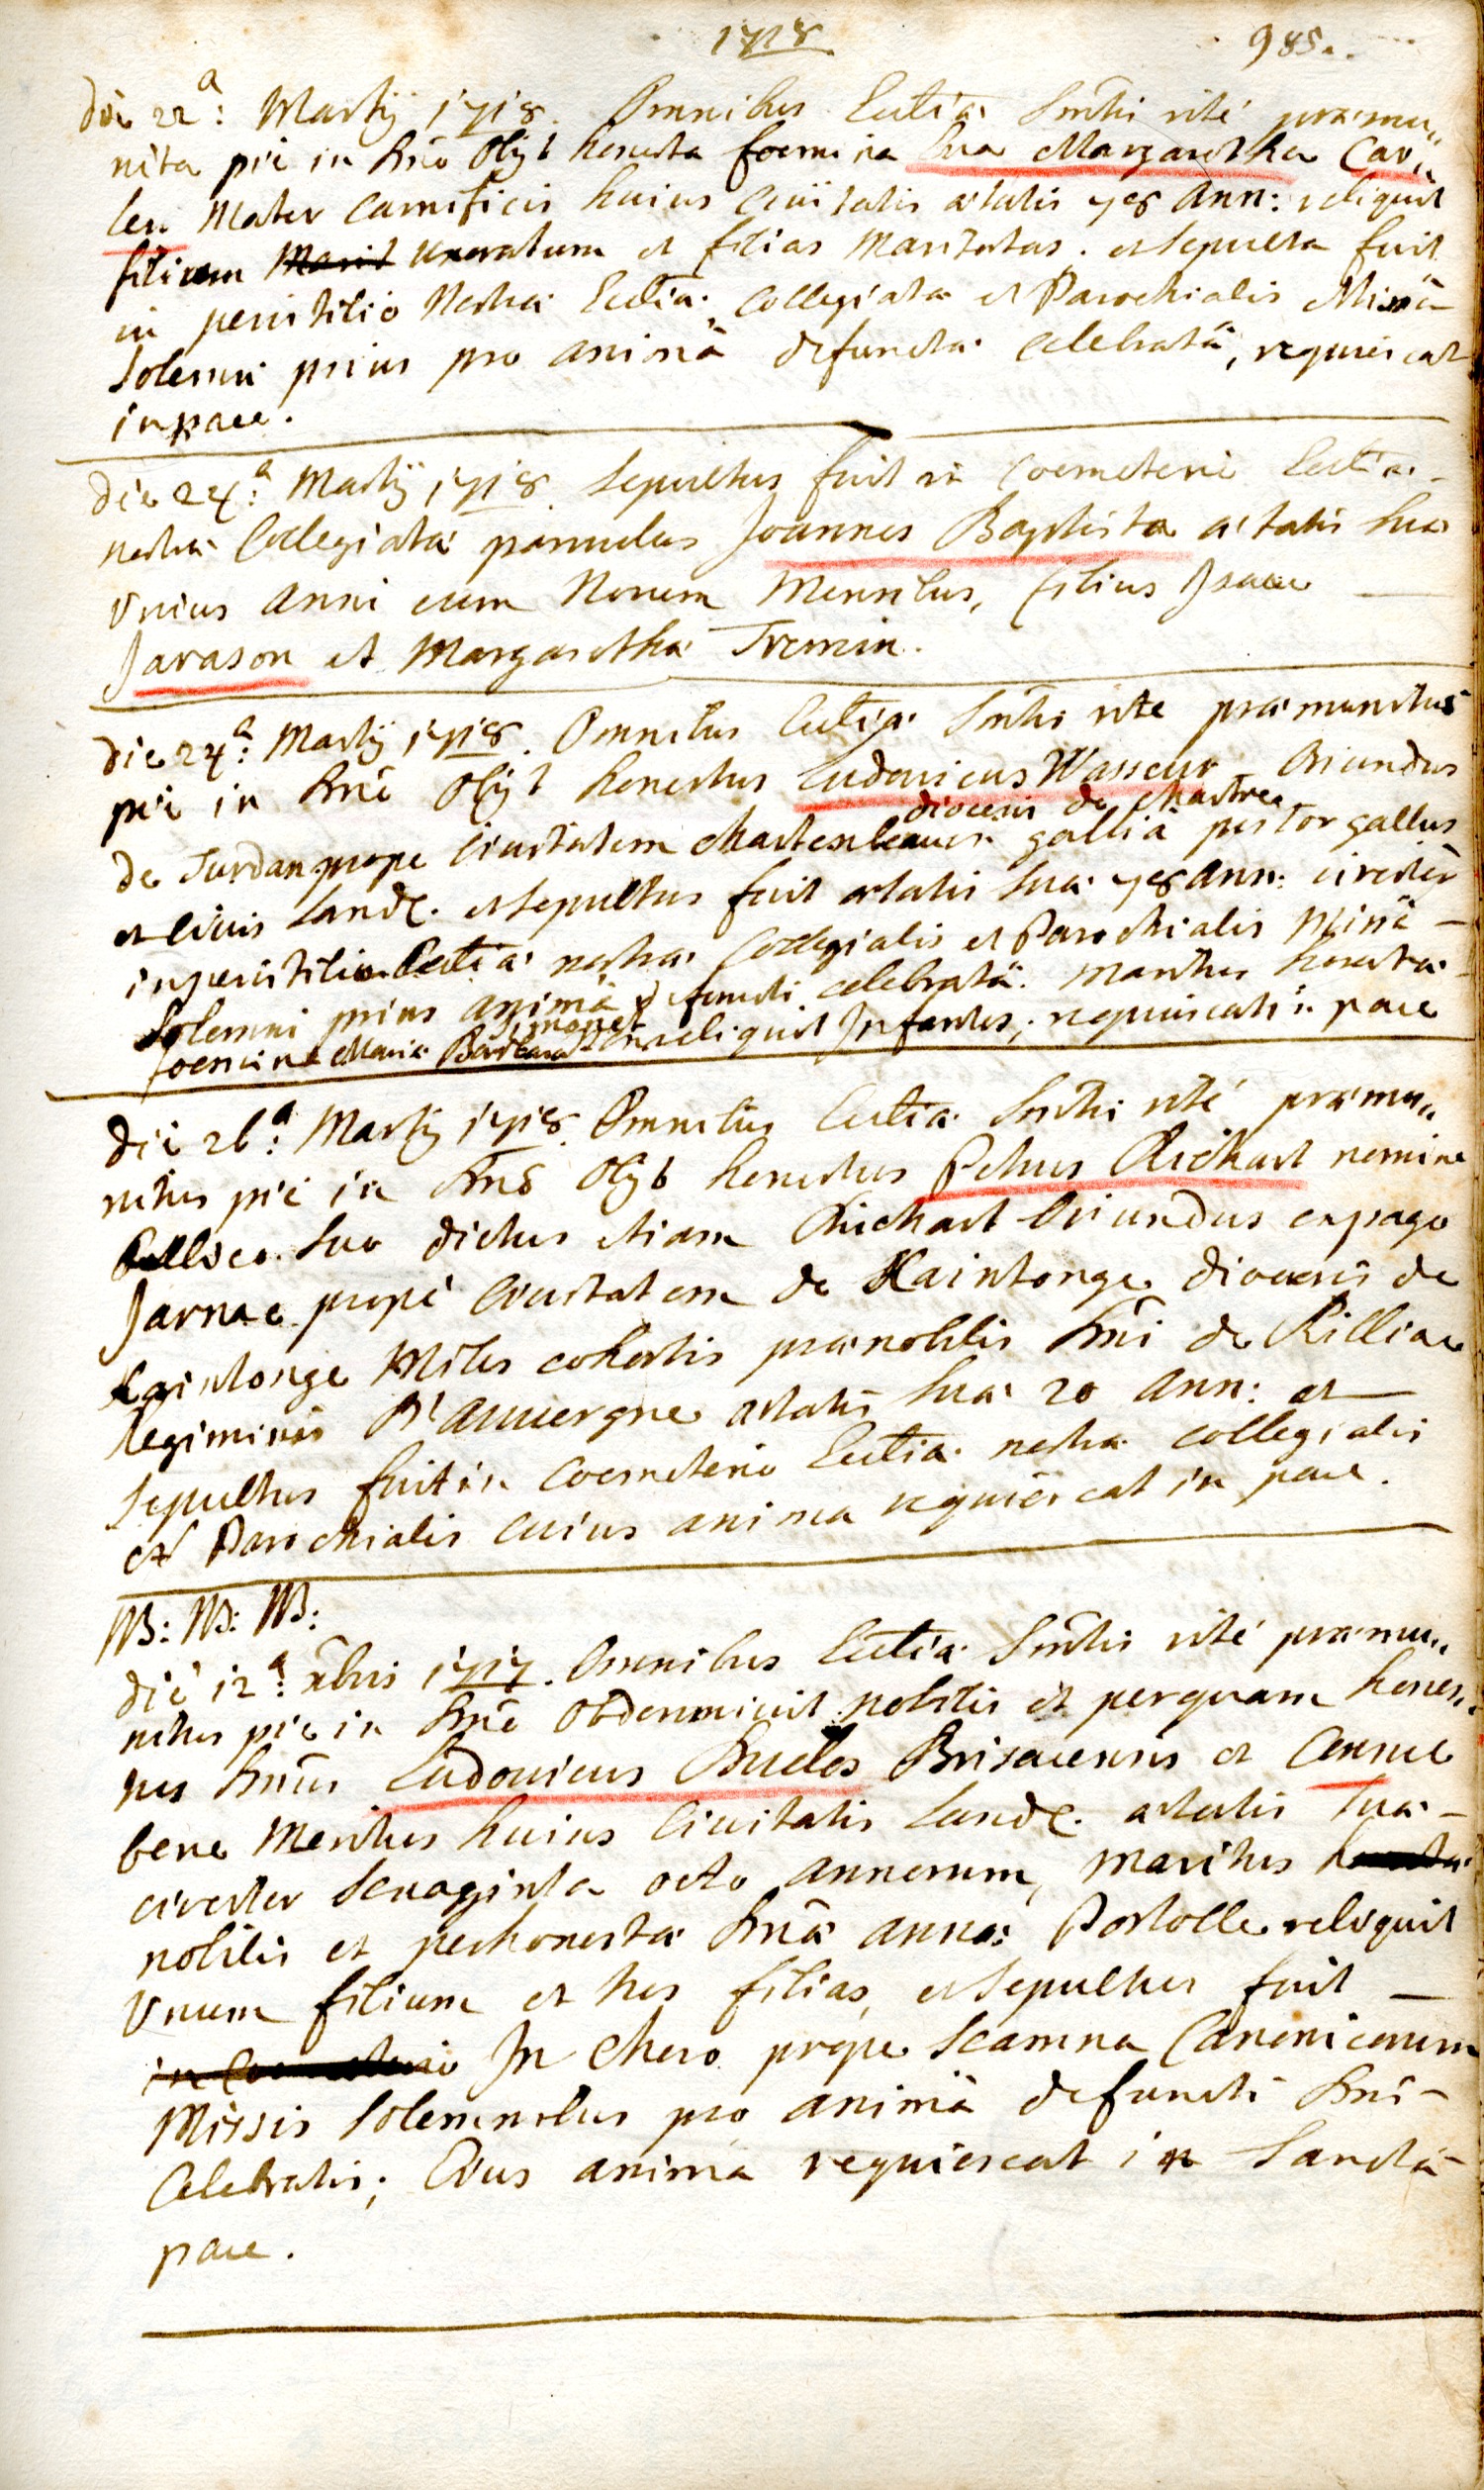 1718
985.
die 22a: Martij 1718. Omnibus Ecclia Smtis rité præmu„
nita pié in Dno Obijt honesta foemina Eva Margaretha Cari„
len Mater carnificis huius Civitatis ætatis 78 ann: reliquit
filium Marit uxoratum et filias Maritatas. et sepulta fuit
in peristilio Nostræ Eccliæ Collegiatæ et Parochialis Missâ
Solemni prius pro animâ defunctæ celebratâ, requiescat
in pace.
die 24a: Martij 1718. sepultus fuit in Coemeterio Eccliæ
nostræ Collegiatæ parvulus Joannes Baptista ætatis suæ
Unius anni cum Novem Mensibus, filius Isaac
Jarason et Margarethæ Tremin.
die 24a: Martij 1718. Omnibus Eccliæ Smtis rite præmunitus
pié in Dno Obijt honestus Ludovicus Wasseur Oriundus
de Jurdan prope Civitatem diocesis de Chartre galliâ pistor gallus
et civis Land. et sepultus fuit ætatis suæ 78 ann: circiter
in peristilio Eccliæ nostræ Collegialis et Parochialis Missâ
Solemni prius animâ defuncti celebratâ. Maritus honestæ
foeminæ Mariæ Barbara reliquit Infantes; requiescat in pace
die 26a: Martij 1718. Omnibus Eccliæ Smtis rité præmu„
nitus pié in Dno Obijt honestus Petrus Richart nomine
Bellico suo dictus etiam Richart Oriundus ex pago
Jarnac propé Civitatem de Xaintonge diocesis de
Xaintonge Miles cohortis prænobilis Dni de Rilliac
Regiminis D'auvergne ætatis suæ 20 ann: et
sepultus fuit in Coemeterio Eccliæ nostræ collegialis
et Parochialis cuius anima requiescat in pace.
NB: NB: NB:
die 12a: xbris 1717. Omnibus Eccliæ Smtis rité præmu„
nitus pié in Dno Obdormivit nobilis et perquam hones„
tus Dnus Ludovicus Buclos Brisacensis et
bene Meritus huius Civitatis Land. ætatis suæ
circiter sexaginta octo annorum, maritus
nobilis et perhonestæ Dnæ annæ Portolle reliquit
Unum filium et tres filias, et sepultus fuit
in Coemeterio In choro prope scamna Canonicorum
Missis Solemnibus pro animâ defuncti Dni
Celebratis; Eius anima requiescat in sanctâ
pace.